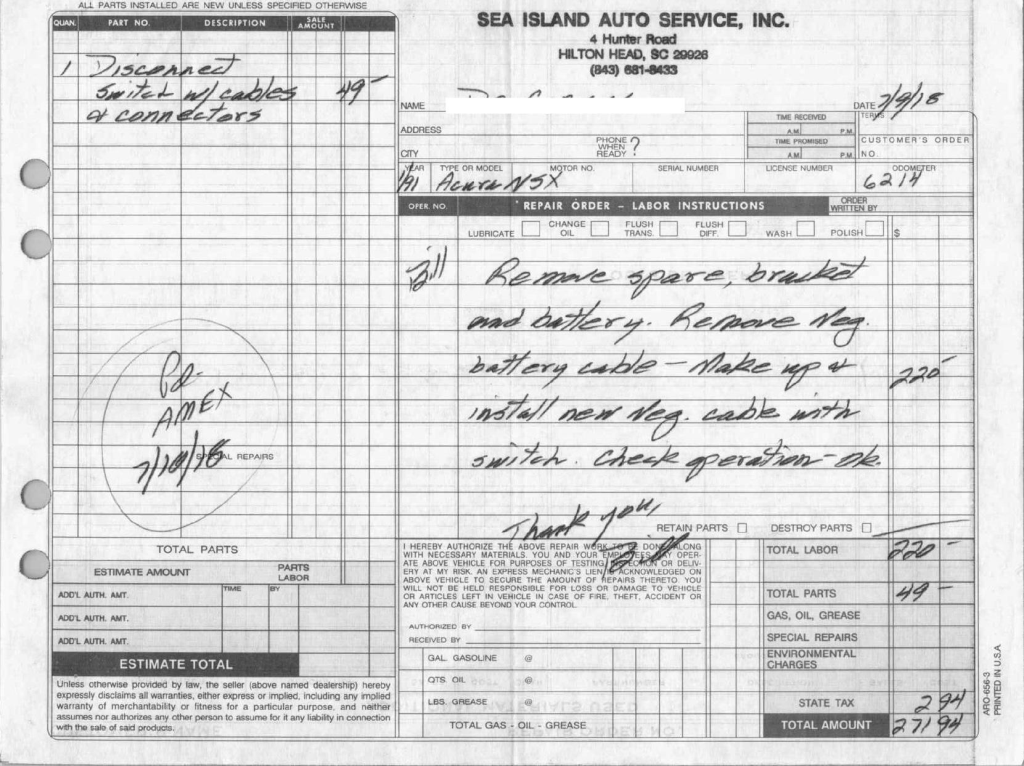 ALL PARTS INSTALLED ARE NEW UNLESS SPECIFIED OTHERWISE
QUAN. PART NO. DESCRIPTION SALE AMOUNT
1 Disconnect
switch w/ cables 49-
& connectors
Pd-
AMEX
7/10/18
SPECIAL REPAIRS
TOTAL PARTS
ESTIMATE AMOUNT PARTS LABOR
TIME BY
ADD'L AUTH. AMT.
ADD'L AUTH. AMT.
ADD'L AUTH. AMT.
ESTIMATE TOTAL
Unless otherwise provided by law, the seller (above named dealership) hereby
expressly disclaims all warranties, either express or implied, including any implied
warranty of merchantability or fitness for a particular purpose, and neither
assumes nor authorizes any other person to assume for it any liability in connection
with the sale of said products.
SEA ISLAND AUTO SERVICE, INC.
4 Hunter Road
HILTON HEAD, SC 29926
(843) 681-8433
NAME DATE 7/9/18
ADDRESS TIME RECEIVED A.M. P.M. TERMS
CITY PHONE WHEN READY? TIME PROMISED A.M. P.M. CUSTOMER'S ORDER NO.
YEAR TYPE OR MODEL MOTOR NO. SERIAL NUMBER LICENSE NUMBER ODOMETER
'91 Acura NSX 6214
OPER. NO. REPAIR ORDER - LABOR INSTRUCTIONS ORDER WRITTEN BY
LUBRICATE CHANGE OIL FLUSH TRANS. FLUSH DIFF. WASH POLISH $
Bill Remove spare, bracket
and battery. Remove Neg.
battery cable - Make up & 220-
install new Neg. cable with
switch. Check operation - ok.
Thank you,
Bill
RETAIN PARTS DESTROY PARTS
I HEREBY AUTHORIZE THE ABOVE REPAIR WORK TO BE DONE ALONG
WITH NECESSARY MATERIALS. YOU AND YOUR EMPLOYEES MAY OPER-
ATE ABOVE VEHICLE FOR PURPOSES OF TESTING, INSPECTION OR DELIV-
ERY AT MY RISK. AN EXPRESS MECHANIC'S LIEN IS ACKNOWLEDGED ON
ABOVE VEHICLE TO SECURE THE AMOUNT OF REPAIRS THERETO. YOU
WILL NOT BE HELD RESPONSIBLE FOR LOSS OR DAMAGE TO VEHICLE
OR ARTICLES LEFT IN VEHICLE IN CASE OF FIRE, THEFT, ACCIDENT OR
ANY OTHER CAUSE BEYOND YOUR CONTROL.
AUTHORIZED BY
RECEIVED BY
GAL. GASOLINE @
QTS. OIL @
LBS. GREASE @
TOTAL GAS - OIL - GREASE
TOTAL LABOR 220-
TOTAL PARTS 49-
GAS, OIL, GREASE
SPECIAL REPAIRS
ENVIRONMENTAL CHARGES
STATE TAX 2 94
TOTAL AMOUNT 271 94
ARO-656-3
PRINTED IN U.S.A